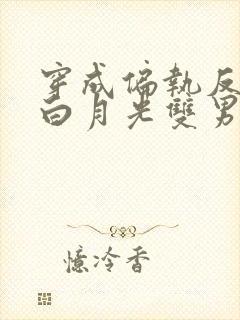 穿成偏執反
白月光雙男
憶冷香